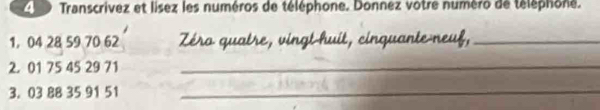 4 Transcrivez et lisez les numéros de téléphone. Donnez votre numéro de téléphone.
1. 04 28 59 70 62 Zéro quatre, vingt-huit, cinquante-neuf,
2. 01 75 45 29 71
3. 03 88 35 91 51